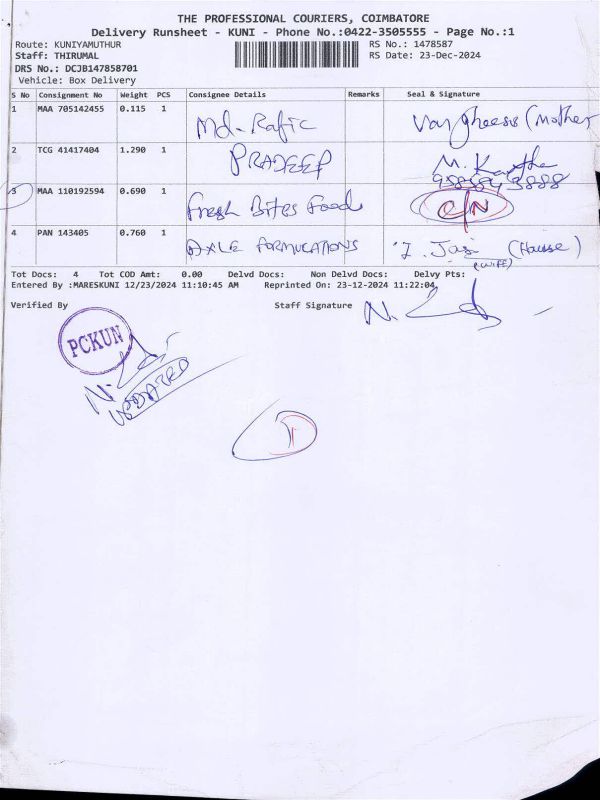 THE PROFESSIONAL COURIERS, COIMBATORE
Delivery Runsheet - KUNI - Phone No.:0422-3505555 - Page No.:1
Route: KUNIYAMUTHUR RS No.: 1478587
Staff: THIRUMAL RS Date: 23-Dec-2024
DRS No.: DCJB147858701
Vehicle: Box Delivery
S No Consignment No Weight PCS Consignee Details Remarks Seal & Signature
1 MAA 705142455 0.115 1 Md. Rafic (Mother
2 TCG 41417404 1.290 1 PRADEEP M.
3 MAA 110192594 0.690 1 Fresh Bites Food C/N
4 PAN 143405 0.760 1 AXLE FORMULATIONS (House)
(wife)
Tot Docs: 4 Tot COD Amt: 0.00 Delvd Docs: Non Delvd Docs: Delvy Pts:
Entered By :MARESKUNI 12/23/2024 11:10:45 AM Reprinted On: 23-12-2024 11:22:04
Verified By Staff Signature N.
PCKUN
N.
UPDATED
1